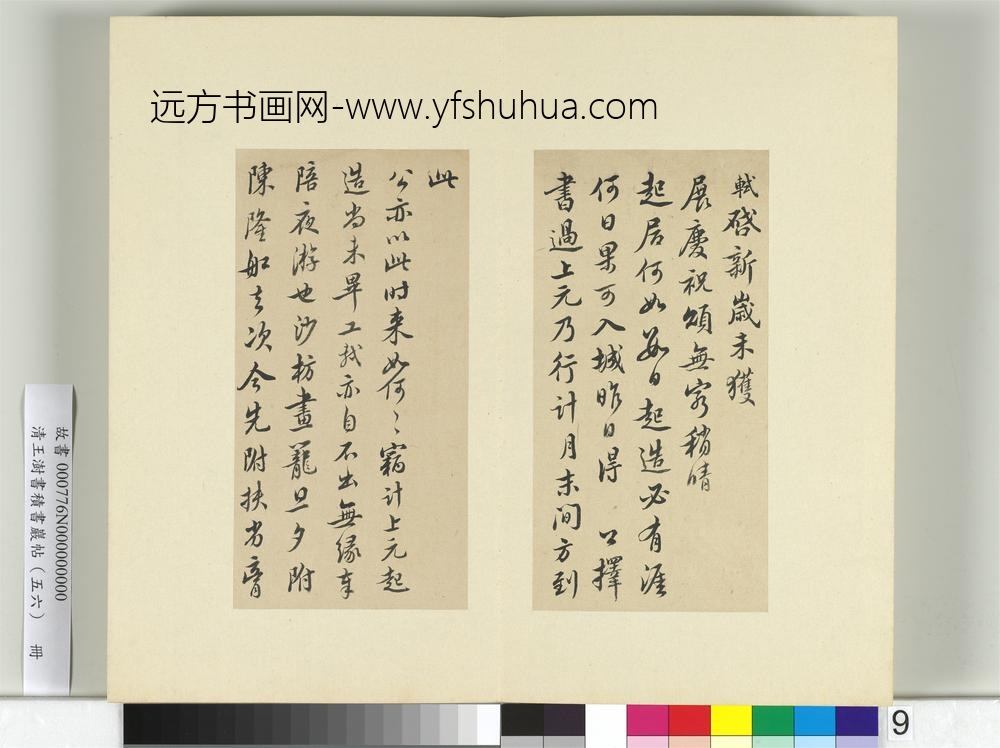 远方书画网-www.yfshuhua.com
軾啓新歲未獲
展慶祝頌無窮稍晴
起居何如數日起造必有涯
何日果可入城昨日得 公擇
書過上元乃行計月末間方到
此
公亦以此时来如何〻竊計上元起
造尚未畢工軾亦自不出無緣奉
陪夜游也沙枋畫籠旦夕附
陳隆舡去次今先附扶劣膏
故書 000776N000000000
清王澍書積書巖帖（五六） 冊
9